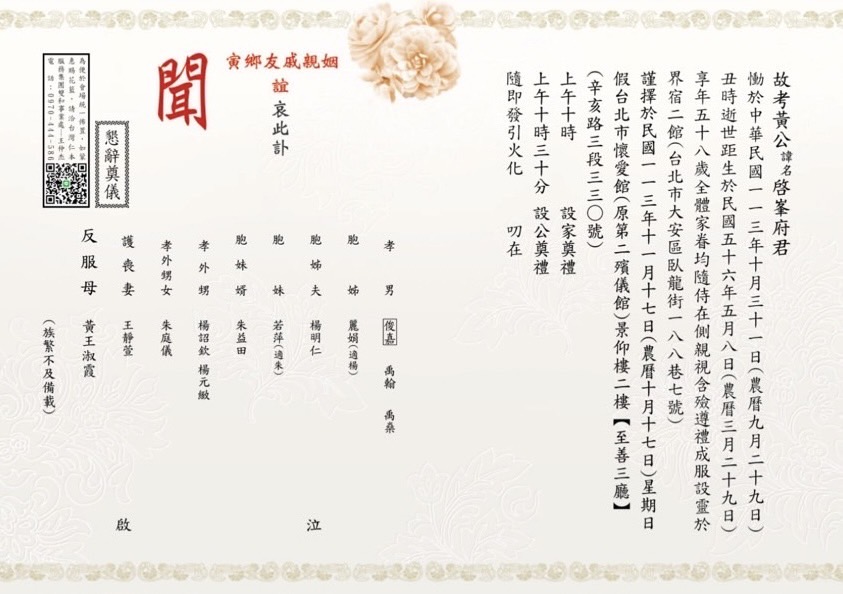 故考黃公諱名啓峯府君
慟於中華民國一一三年十月三十一日(農曆九月二十九日)
丑時逝世距生於民國五十六年五月八日(農曆三月二十九日)
享年五十八歲全體家眷均隨侍在側親視含殮遵禮成服設靈於
界宿二館(台北市大安區臥龍街一八八巷七號)
謹擇於民國一一三年十一月十七日(農曆十月十七日)星期日
假台北市懷愛館(原第二殯儀館)景仰樓二樓【至善三廳】
(辛亥路三段三三〇號)
上午十時 設家奠禮
上午十時三十分 設公奠禮
隨即發引火化 叨在
姻親戚友鄉寅
誼 哀此訃
聞
孝男 俊嘉 禹翰 禹桑
胞姊 麗娟(適楊)
胞姊夫 楊明仁
胞妹 若萍(適朱)
胞妹婿 朱益田
孝外甥 楊詔欽 楊元緻
孝外甥女 朱庭儀
護喪妻 王靜萱
反服母 黃王淑霞
(族繁不及備載)
泣
啟
懇辭奠儀
為便於會場統一佈置，如蒙
惠賜花籃，請洽台灣仁本
服務集團雙和事業處－王仲杰
電話：0970-444-586